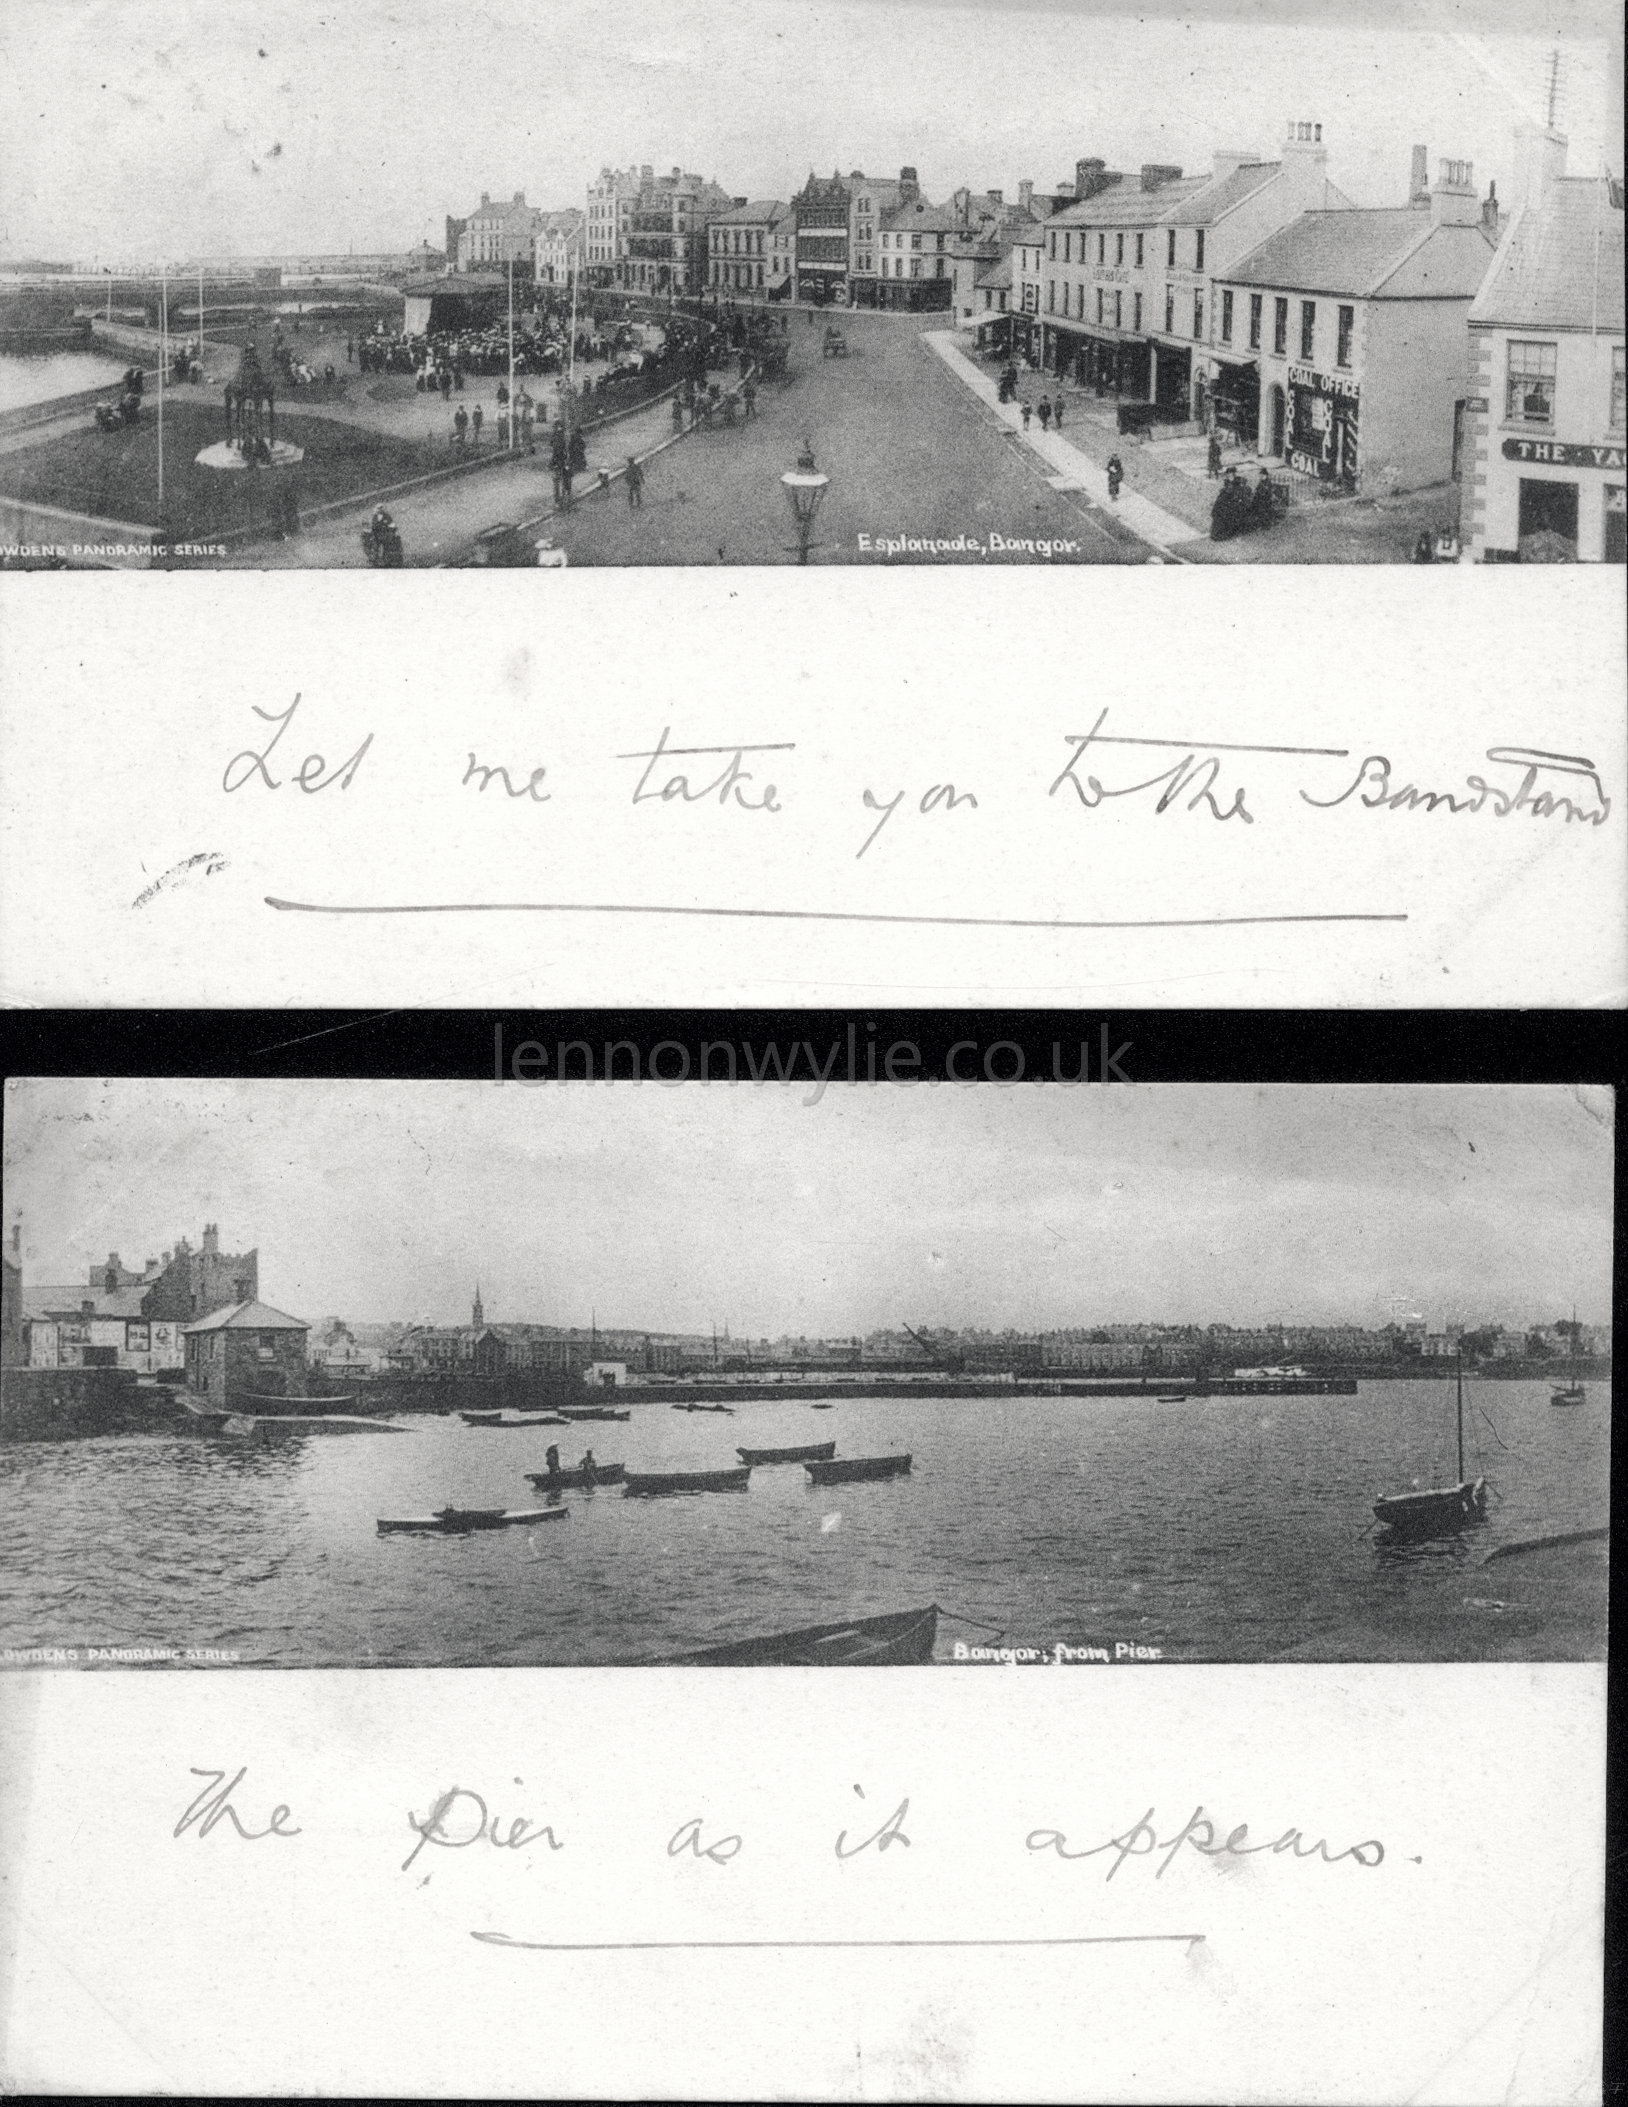 COAL OFFICE
COAL
COAL
COAL
THE YA
OWDENS PANORAMIC SERIES
Esplanade, Bangor.
Let me take you to the Bandstand
lennonwylie.co.uk
OWDENS PANORAMIC SERIES
Bangor; from Pier
The Pier as it appears.